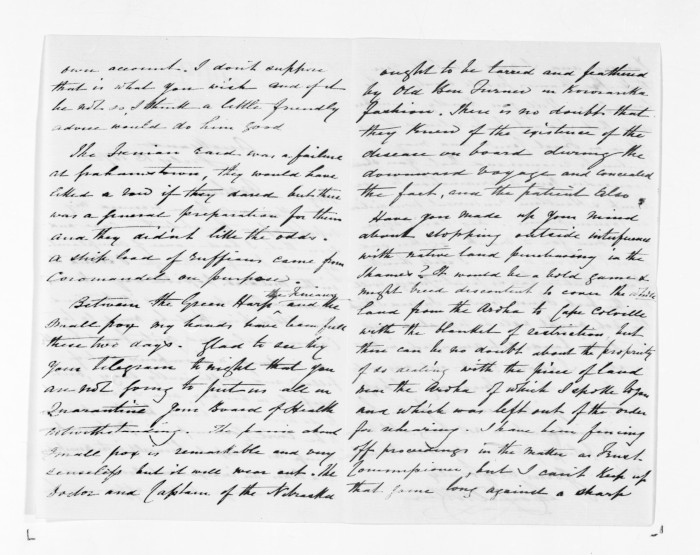 own account. I don't suppose
that is what you wish and if it
be not so, I think a little friendly
advice would do him good
The Fenian raid was a failure
at Grahamstown, they would have
liked a row if they dared but there
was a general preparation for them
and they didn't like the odds.
A ship load of ruffians came from
Coromandel on purpose.
Between the Green Harp the Fenians and the
Small pox my hands have been full
these two days. Glad to see by
Your telegram to night that you
are not going to put us all in
Quarantine Your Board of Health
notwithstanding. The panic about
Small pox is remarkable and very
senseless but it will wear out. The
Doctor and Captain of the Nebraska
ought to be tarred and feathered
by Old Ben Turner in Kororarika
fashion. There is no doubt that
they knew of the existence of the
disease on board during the
downward voyage and concealed
the fact, and the patient also
Have you made up your mind
about stopping outside interference
with native land purchasing in the
Thames? It would be a bold game &
might breed discontent to cover the whole
land from the Aroha to Cape Colville
with the blanket of restriction but
there can be no doubt about the propriety
of so dealing with the piece of land
near the Aroha of which I spoke
and which was left out of the order
for rehearing. I have been fencing
off proceedings in the matter as Trust
Commissioner, but I can't keep up
that game long against a sharp